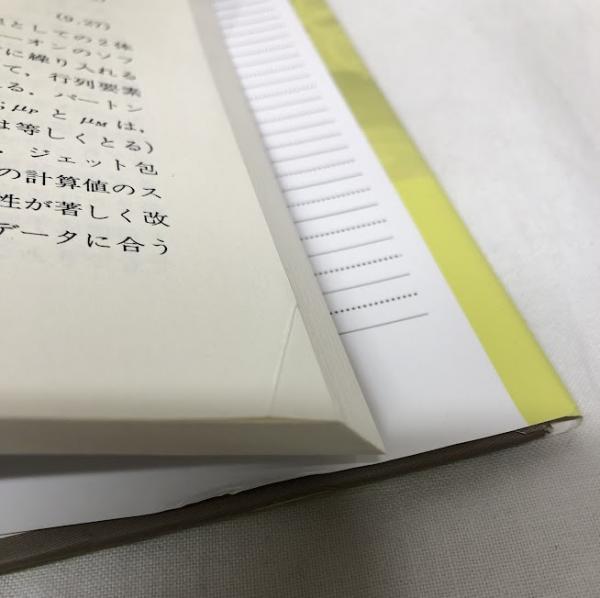 (9.27)
としての2体
ーオンのソフ
に繰り入れる
て，行列要素
る．パートン
μF と μM は，
は等しくとる)
・ジェット包
の計算値のス
性が著しく改
データに合う